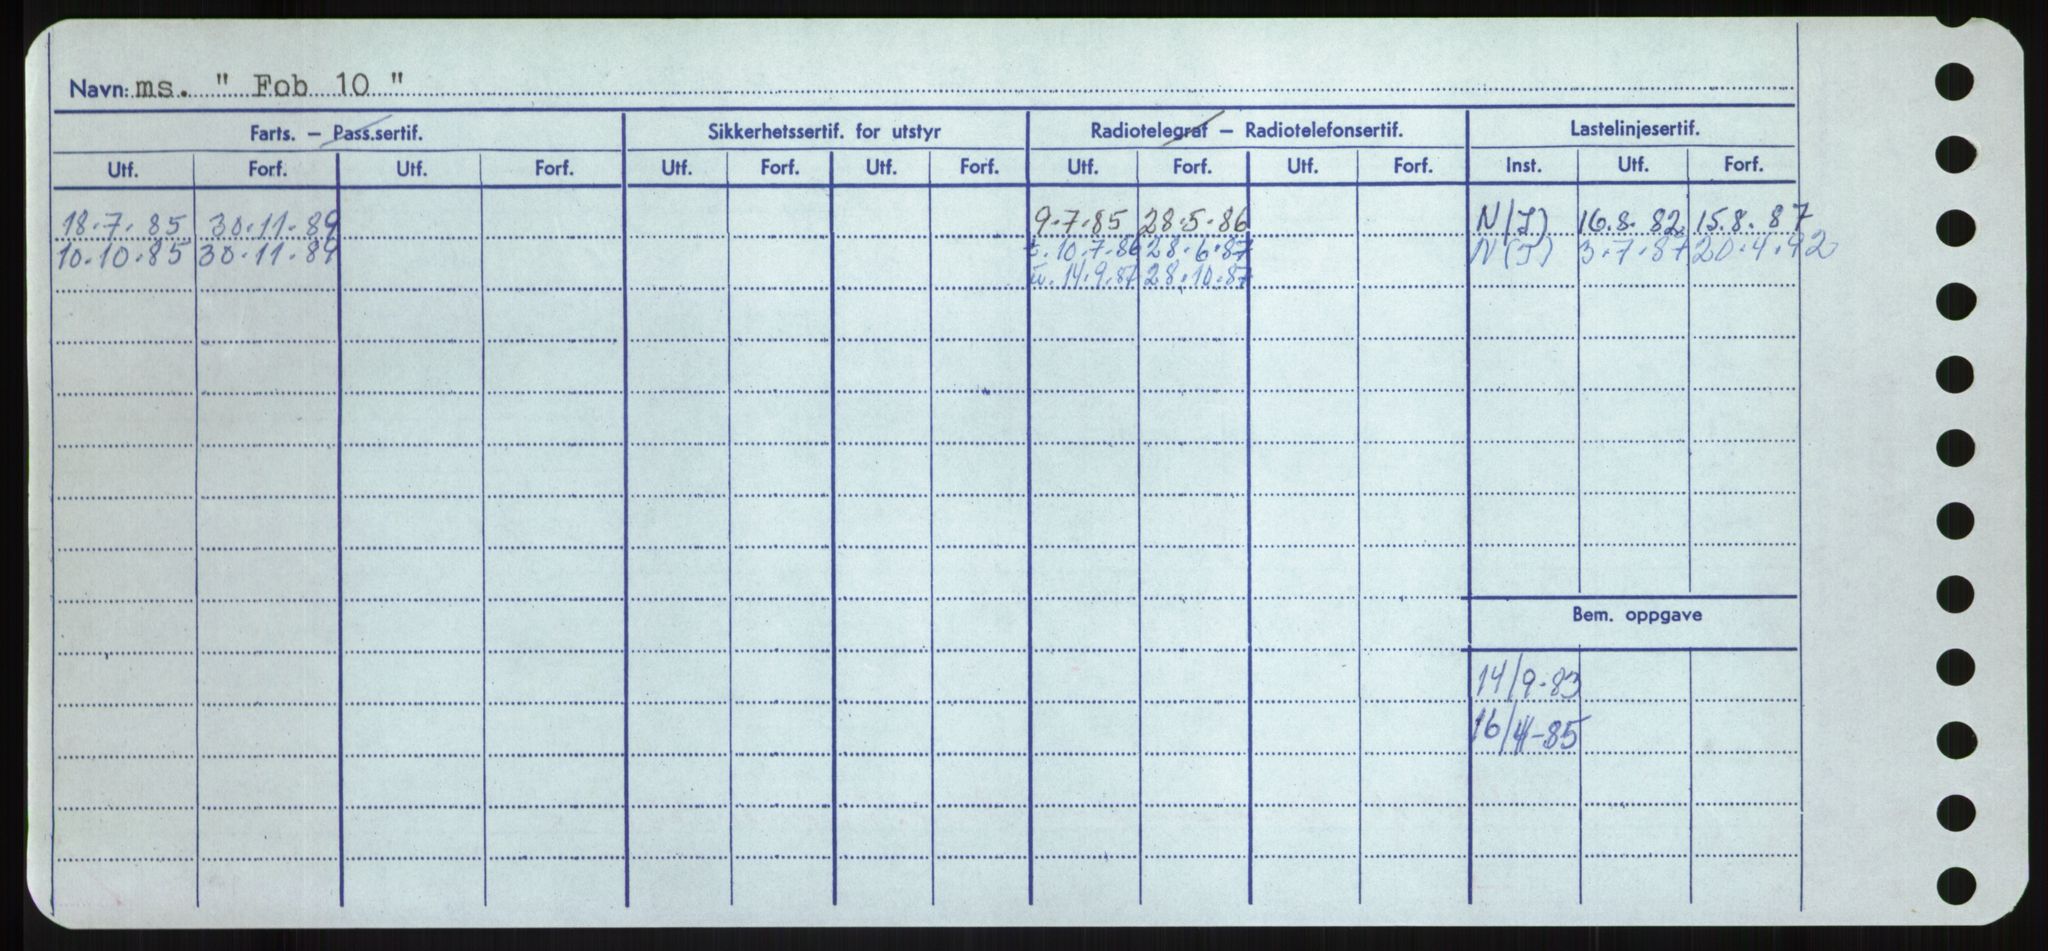 Navn: ms. " Fob 10 "
Farts. – Pass.sertif. Sikkerhetssertif. for utstyr Radiotelegraf – Radiotelefonsertif. Lastelinjesertif.
Utf. Forf. Utf. Forf. Utf. Forf. Utf. Forf. Utf. Forf. Utf. Forf. Inst. Utf. Forf.
18.7.85 30.11.89 9.7.85 28.5.86 N(I) 16.8.82 15.8.87
10.10.85 30.11.89 10.7.86 28.6.87 N(I) 3.7.87 20.4.92
14.9.87 28.10.87
Bem. oppgave
14/9-83
16/4-85